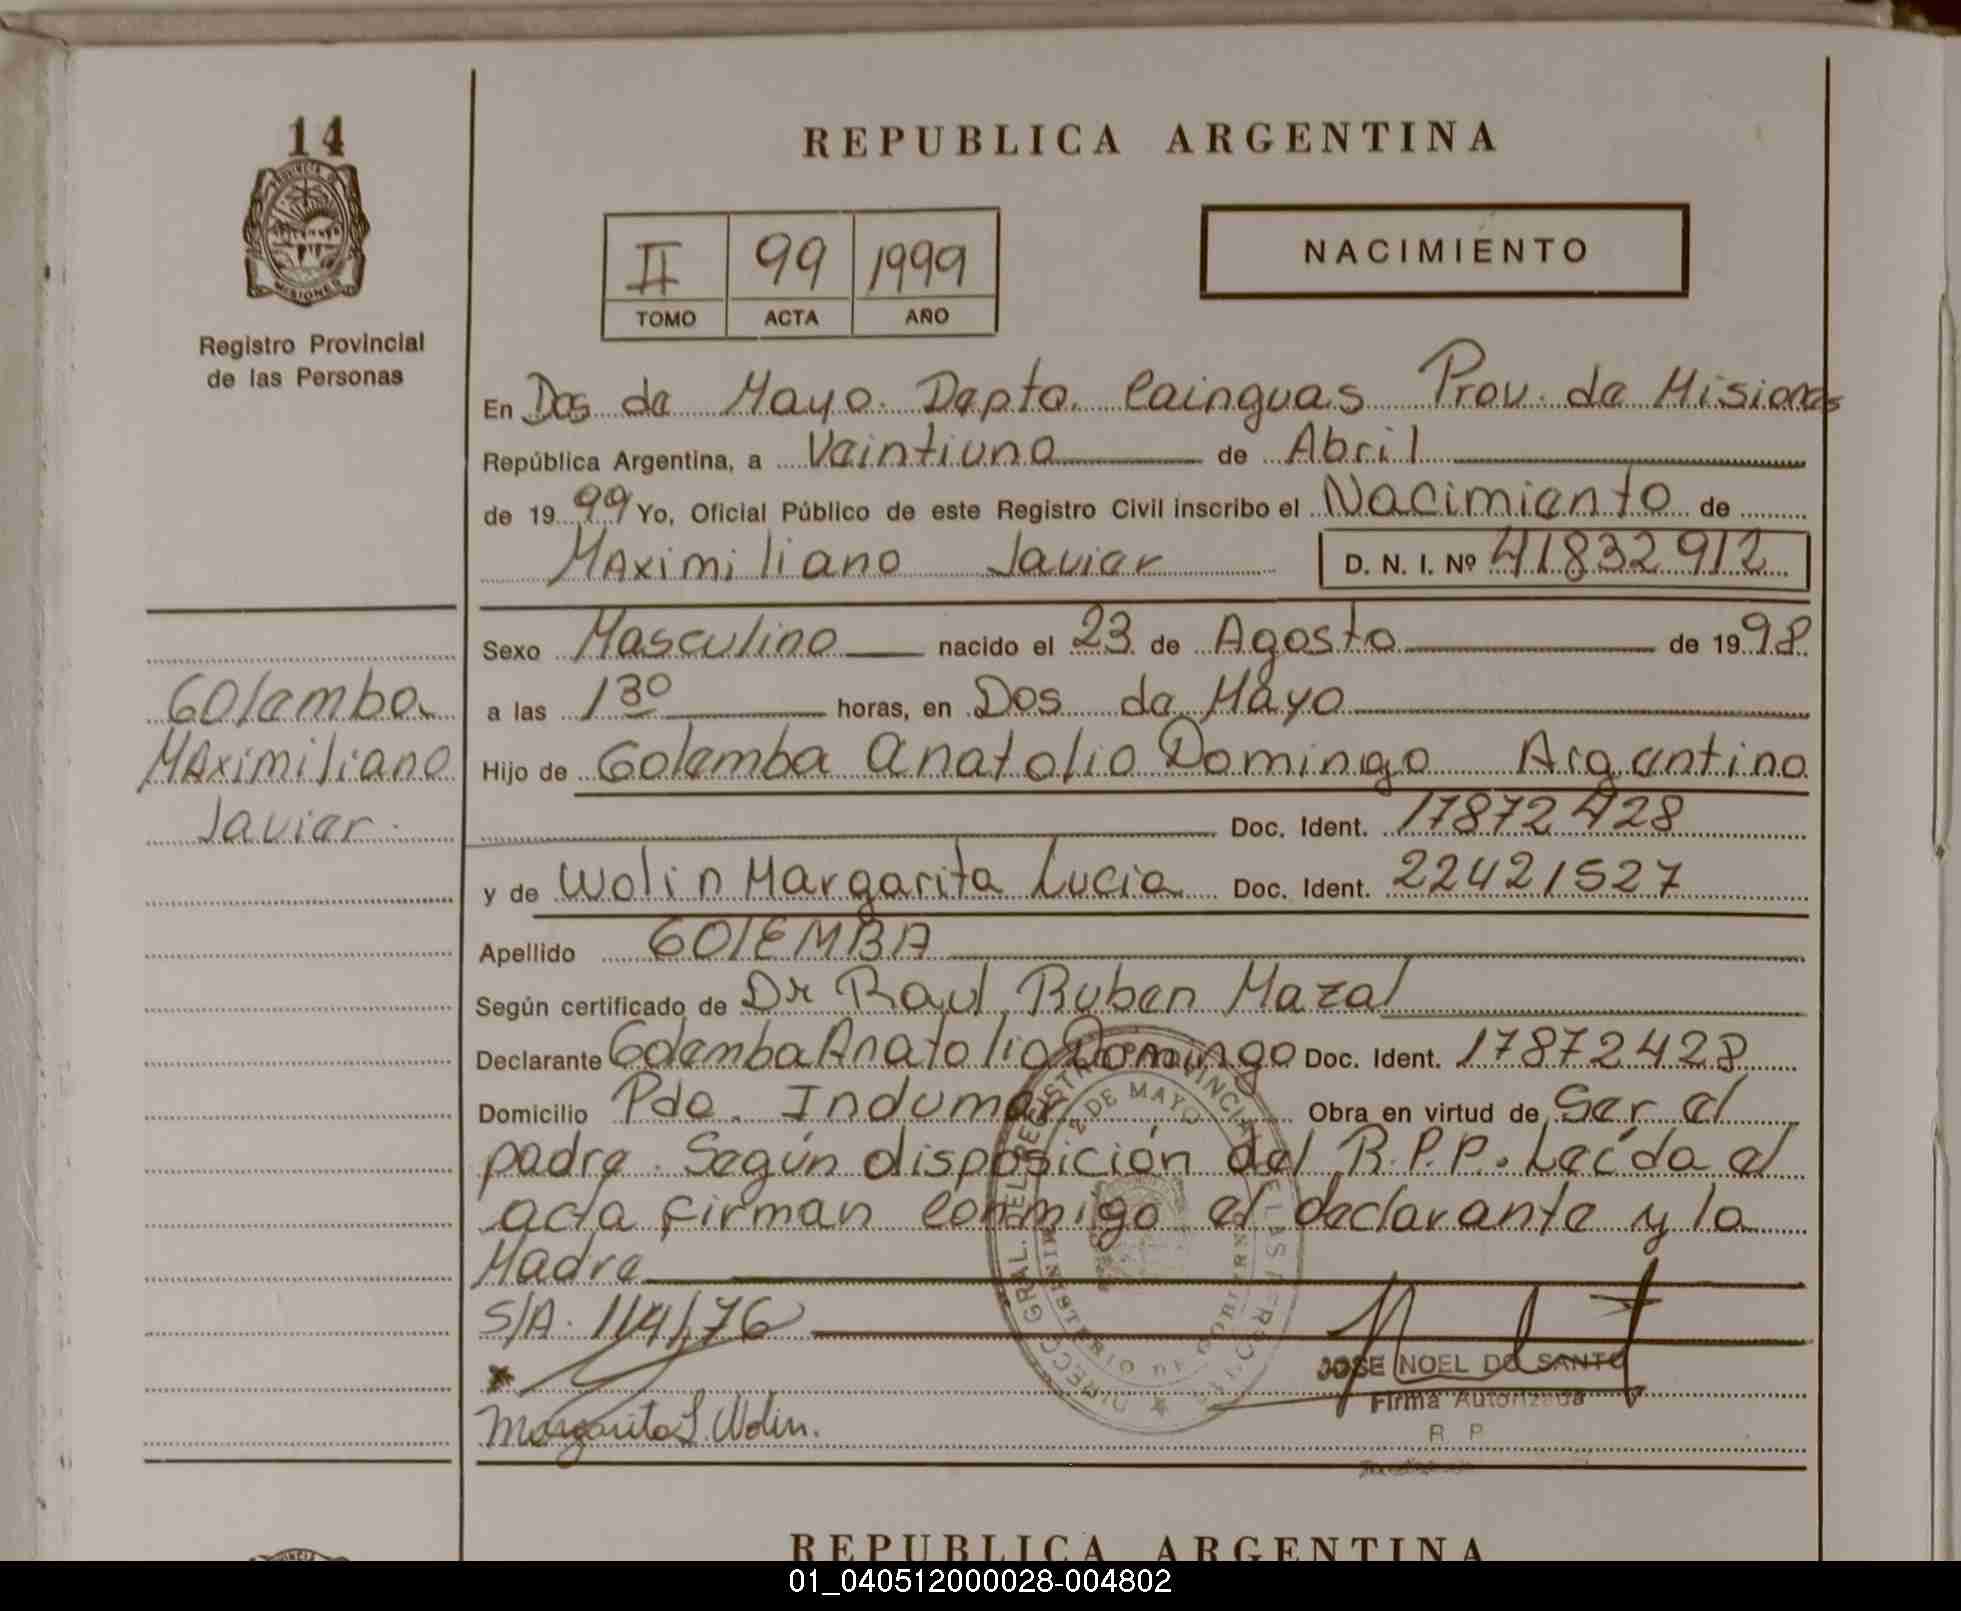 14
PROVINCIA DE
MISIONES
Registro Provincial
de las Personas
REPUBLICA ARGENTINA
II 99 1999
TOMO ACTA AÑO
NACIMIENTO
En Dos de Mayo. Depto. Cainguas Prov. de Misiones
República Argentina, a Veintiuno de Abril
de 1999 Yo, Oficial Público de este Registro Civil inscribo el Nacimiento de
Maximiliano Javier D. N. I. Nº 41832912
Sexo Masculino nacido el 23 de Agosto de 1998
a las 13º horas, en Dos de Mayo
Hijo de Golemba Anatolio Domingo Argentino
Doc. Ident. 17872428
y de Wolin Margarita Lucia Doc. Ident. 22421527
Apellido GOlEMBA
Según certificado de Dr Raul Ruben Mazal
Declarante Golemba Anatolio Domingo Doc. Ident. 17872428
Domicilio Pdo. Indumar Obra en virtud de Ser el
padre. Según disposición del R.P.P. Leída el
acta firman conmigo el declarante y la
Madre
S/A. 114/76
Margarita L. Wolin.
JOSE NOEL DO SANTO
Firma Autorizada
R. P.
Golemba
Maximiliano
Javier.
2 DE MAYO
REPUBLICA ARGENTINA
01_040512000028-004802